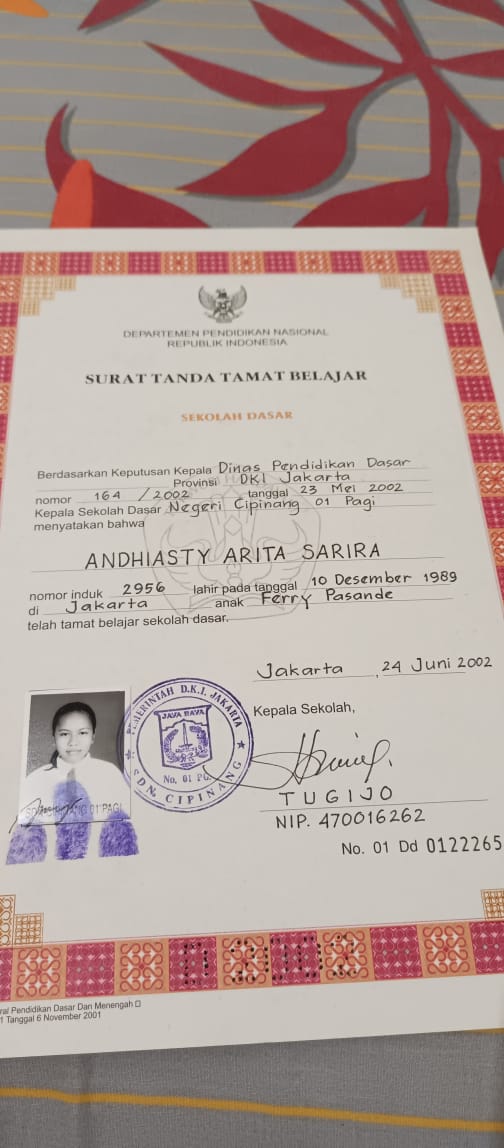 DEPARTEMEN PENDIDIKAN NASIONAL
REPUBLIK INDONESIA
SURAT TANDA TAMAT BELAJAR
SEKOLAH DASAR
Berdasarkan Keputusan Kepala Dinas Pendidikan Dasar
Provinsi DKI Jakarta
nomor 164 /2002 tanggal 23 Mei 2002
Kepala Sekolah Dasar Negeri Cipinang 01 Pagi
menyatakan bahwa
ANDHIASTY ARITA SARIRA
nomor induk 2956 lahir pada tanggal 10 Desember 1989
di Jakarta anak Ferry Pasande
telah tamat belajar sekolah dasar.
Jakarta , 24 Juni 2002
Kepala Sekolah,
PEMERINTAH D.K.I. JAKARTA
JAYA RAYA
No. 01 PG.
SDN. CIPINANG
01 PAGI
TUGIJO
NIP. 470016262
No. 01 Dd 0122265
Pendidikan Dasar Dan Menengah
Tanggal 6 November 2001